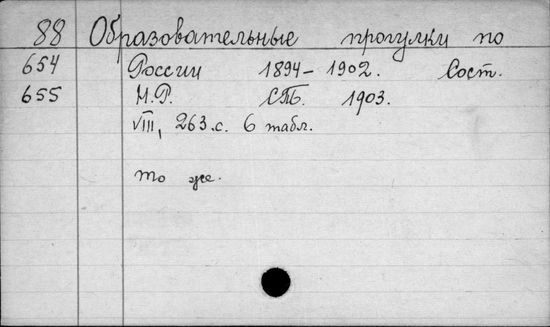 88 Образовательные прогулки по
654 России 1894-1902. Сост.
655 М.Р. СПБ. 1903.
VIII, 263 с. 6 табл.
то же.